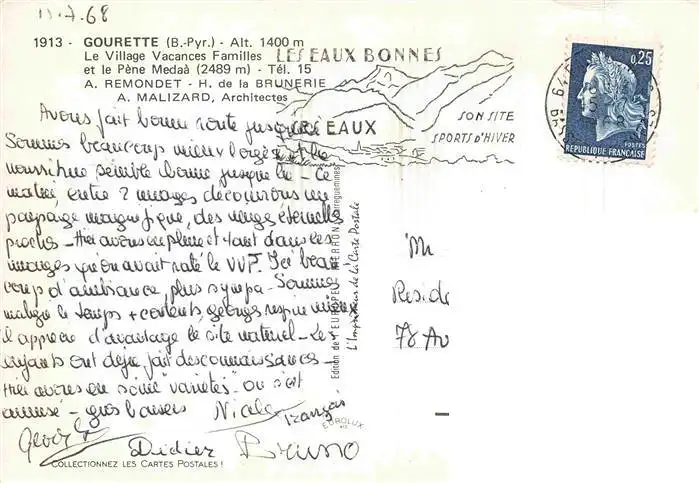 11.7.68
1913 - GOURETTE (B.-Pyr.) - Alt. 1400 m
Le Village Vacances Familles
et le Pène Medaà (2489 m) - Tél. 15
A. REMONDET - H. de la BRUNERIE
A. MALIZARD, Architectes
LES EAUX BONNES
EAUX
SON SITE
SPORTS D'HIVER
0,25
POSTES
REPUBLIQUE FRANÇAISE
Avons fait bonne route jusqu'ici
Sommes beaucoup mieux logés et la
nourriture semble bonne jusque là - Ce
matin, entre 2 nuages découvrons un
paysage magnifique, des neiges éternelles
proches - Hier avons en pleine et tant dans les
nuages qu'on avait raté le VVF. Ici beau
coup d'ambiance, plus sympa - Sommes
malgré le temps + contents, Georges respire mieux
il apprécie d'avantage le site naturel - Les
enfants ont déjà fait des connaissances -
Hier avons eu soirée "variétés" on s'est
amusé - gros baisers Nicole François
Georges
Didier Bruno
Mr
Resid
78 Av
Edition de l'EUROPE PIERRON Sarreguemines
L'Imprimeur de la Carte Postale
EUROLUX
COLLECTIONNEZ LES CARTES POSTALES !